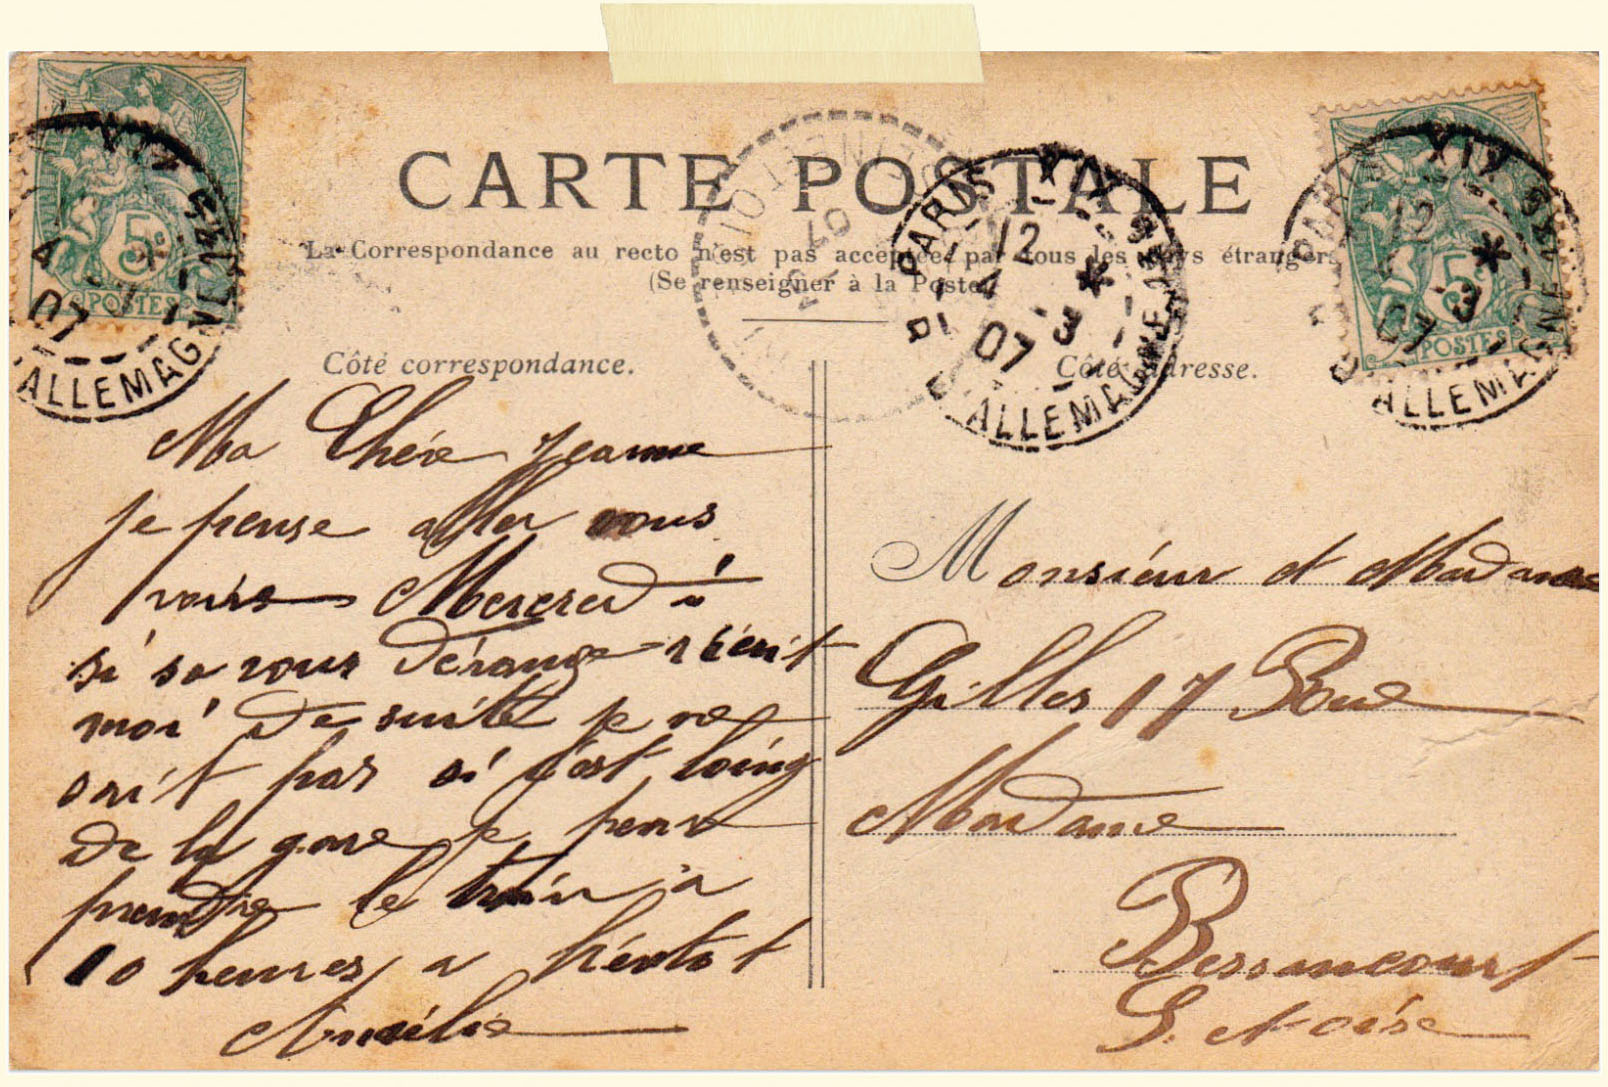 CARTE POSTALE
La Correspondance au recto n'est pas acceptée par tous les pays étrangers
(Se renseigner à la Poste)
Côté correspondance.
Côté adresse.
5c
POSTES
07
ALLEMAGNE
PARIS XIX
12
4 3
07
ALLEMAGNE
PARIS XIX
12
3
07
ALLEMAGNE
5c
POSTES
Ma Chére Jeanne
je pense aller vous
voire Mercredi
si sa vous dérange récrit
moi de suite je ne
sait pas si c'est loing
de la gare je pense
prendre le train a
10 heures a bientot
Amélie
Monsiéur et Madame
Gilles 17 Roue
Madame
Bessancourt
S. et oise